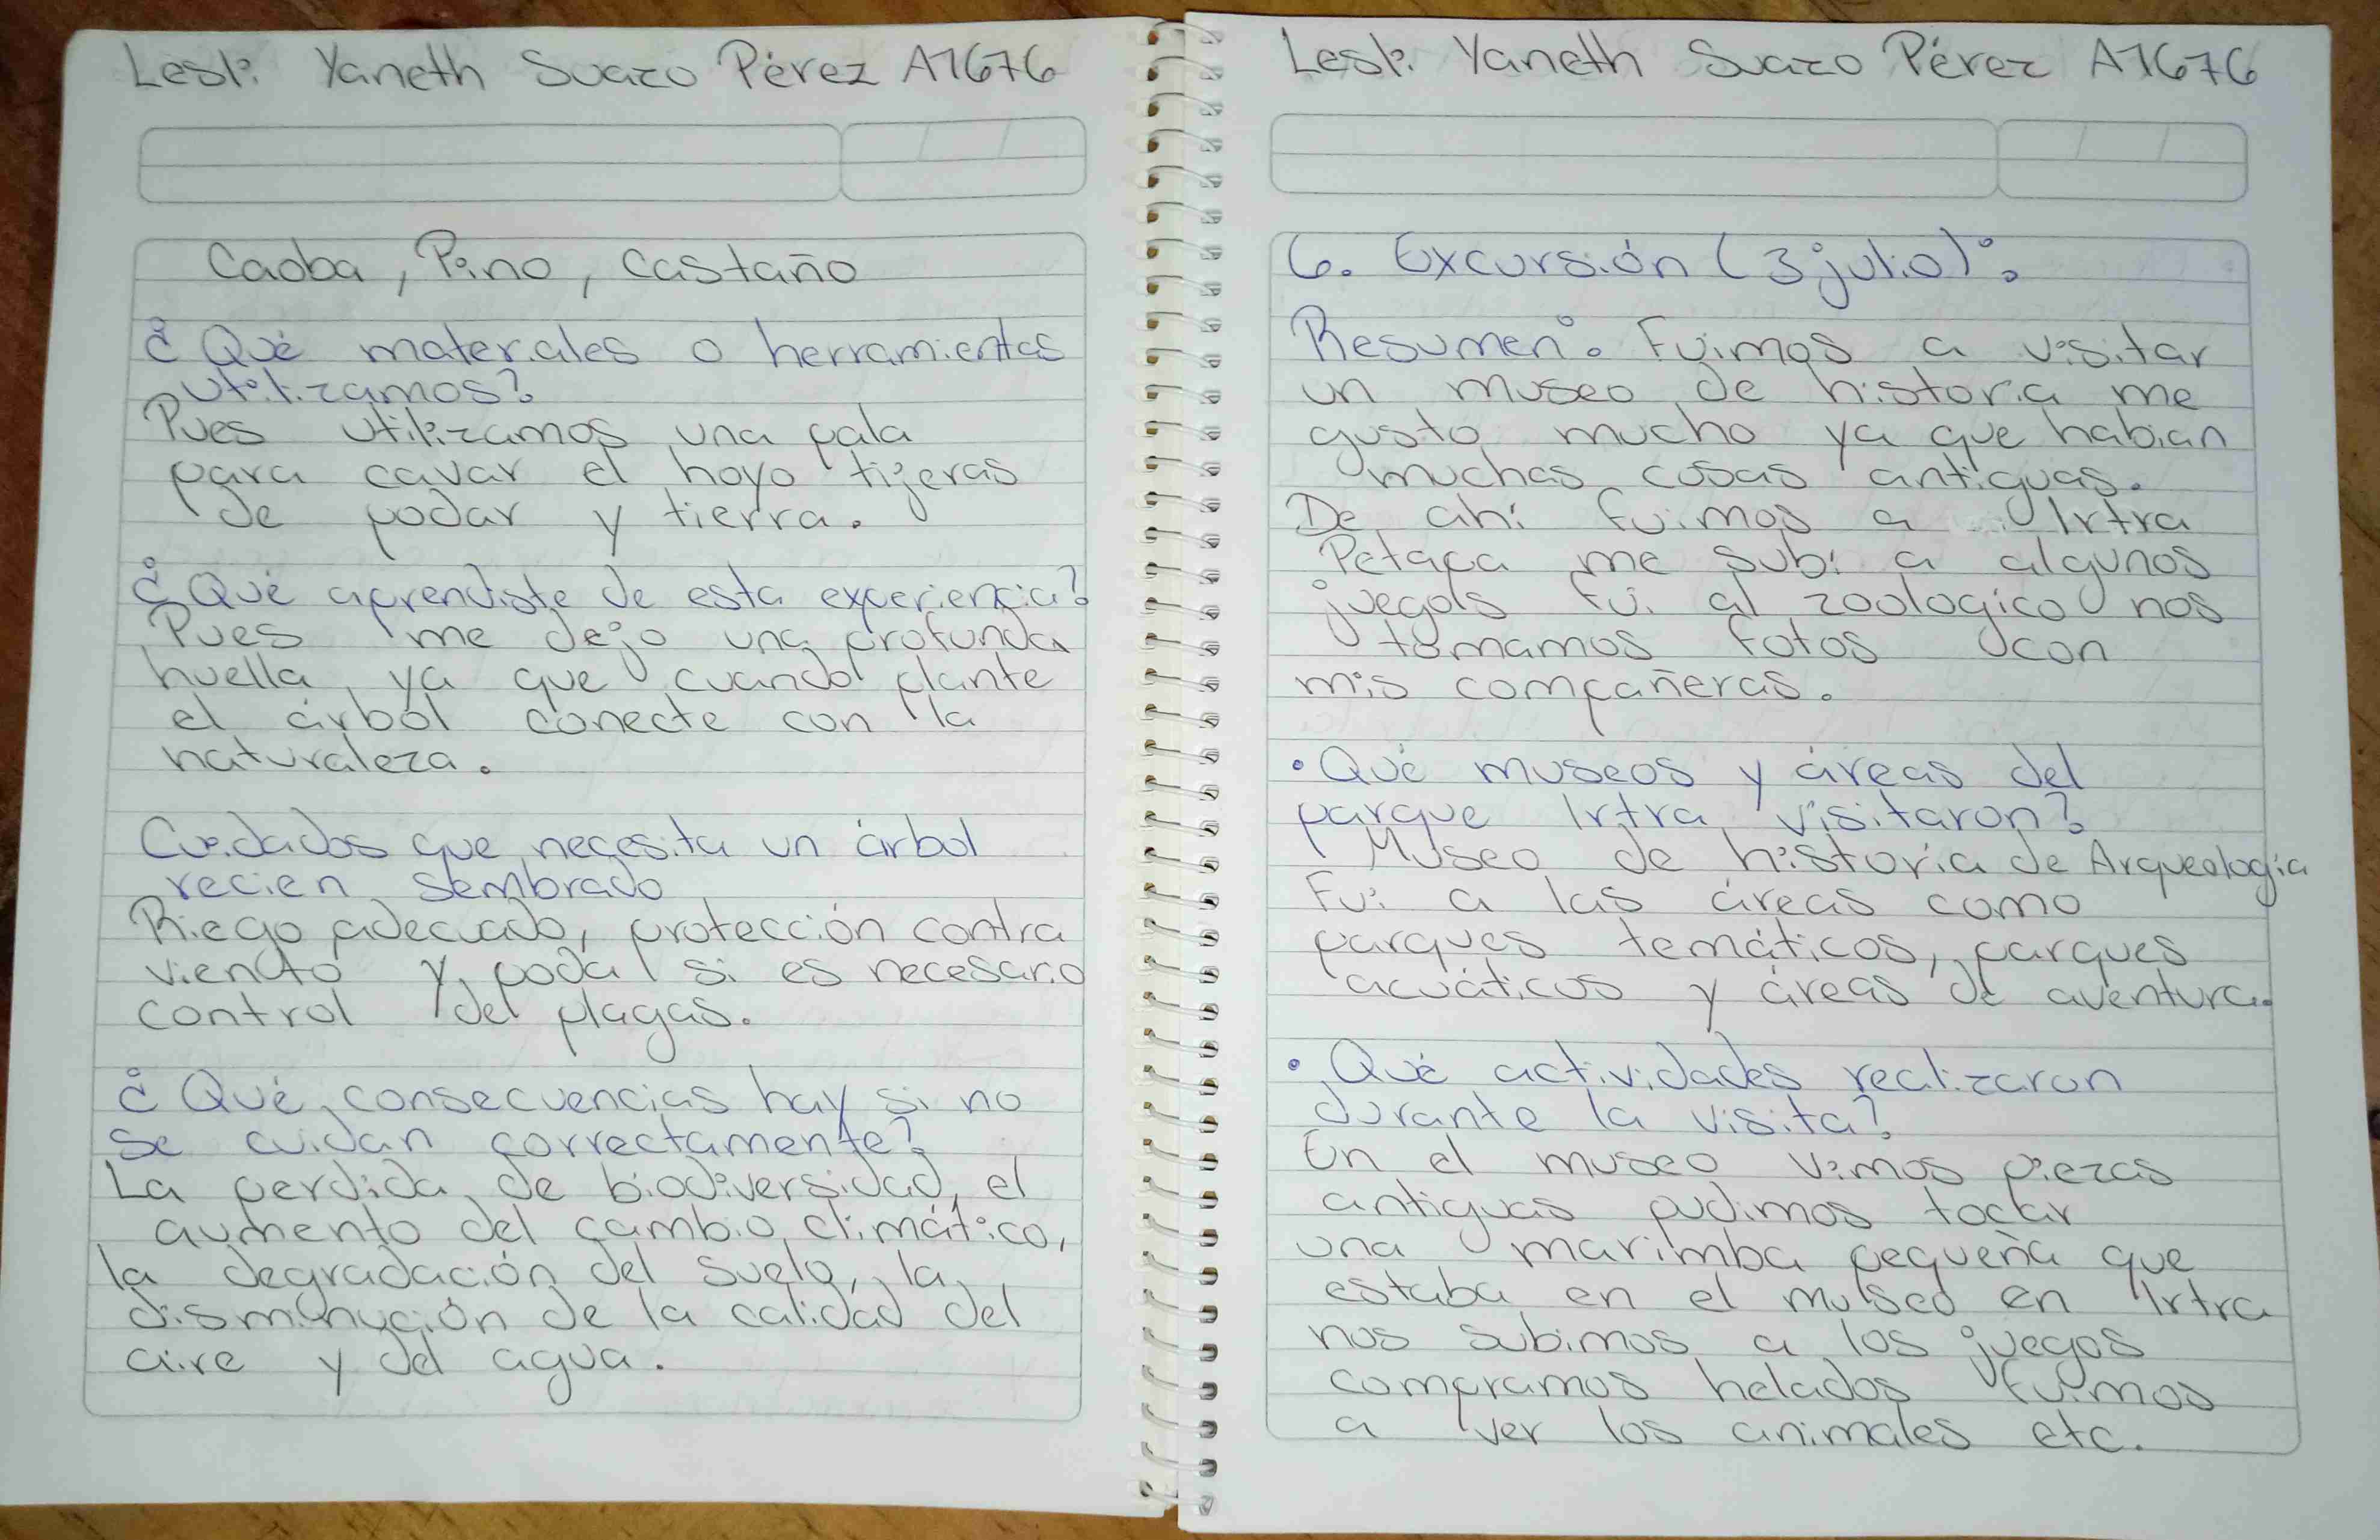 Lesli Yaneth Suazo Pérez A1676
Caoba, Pino, Castaño
¿Qué materiales o herramientas
utilizamos?
Pues utilizamos una pala
para cavar el hoyo tijeras
de podar y tierra.
¿Qué aprendiste de esta experiencia?
Pues me dejo una profunda
huella ya que cuando plante
el árbol conecte con la
naturaleza.
Cuidados que necesita un árbol
recien sembrado
Riego adecuado, protección contra
viento y poda si es necesario
control del plagas.
¿Qué consecuencias hay si no
se cuidan correctamente?
La perdida de biodiversidad, el
aumento del cambio climático,
la degradación del suelo, la
disminución de la calidad del
aire y del agua.
Lesli Yaneth Suazo Pérez A1676
6. Excursión (3 julio):
Resumen: Fuimos a visitar
un museo de historia me
gusto mucho ya que habian
muchas cosas antiguas.
De ahi fuimos a Irtra
Petapa me subi a algunos
juegos fui al zoologico nos
tomamos fotos con
mis compañeras.
• Qué museos y áreas del
parque Irtra visitaron?
Museo de historia de Arqueologia
Fui a las áreas como
parques temáticos, parques
acuáticos y áreas de aventura.
• Qué actividades realizaron
durante la visita?
En el museo vimos piezas
antiguas pudimos tocar
una marimba pequeña que
estaba en el museo en Irtra
nos subimos a los juegos
compramos helados fuimos
a ver los animales etc.